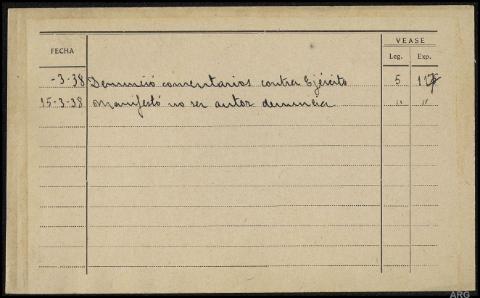 VEASE
FECHA Leg. Exp.
-3-38 Denunció comentarios contra Ejército 5
15-3-38 Manifestó no ser autor denuncia " "
ARG